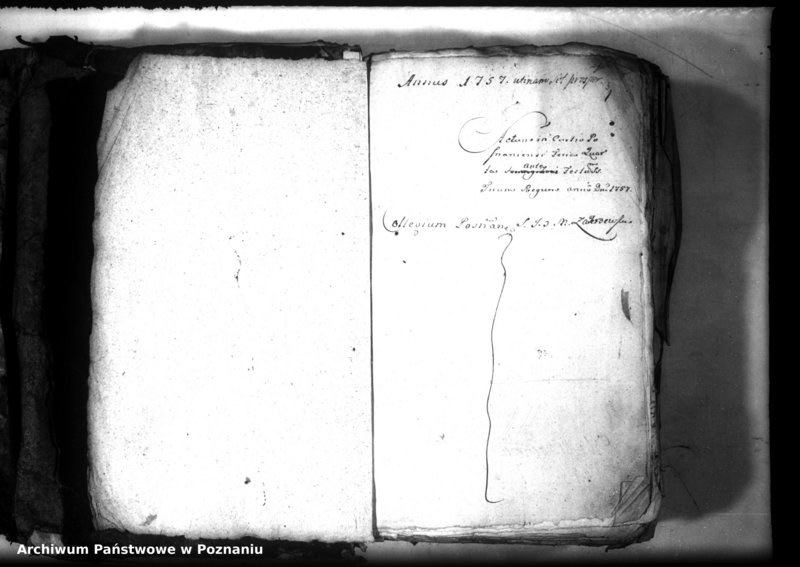 Annus 1757. utinam sit prosper.
Actum in Castro Po
snaniensi Feria Quar
ta ante Festum
Trium Regum anno Dni 1757.
Collegium Posnan S. J. 
Archiwum Państwowe w Poznaniu